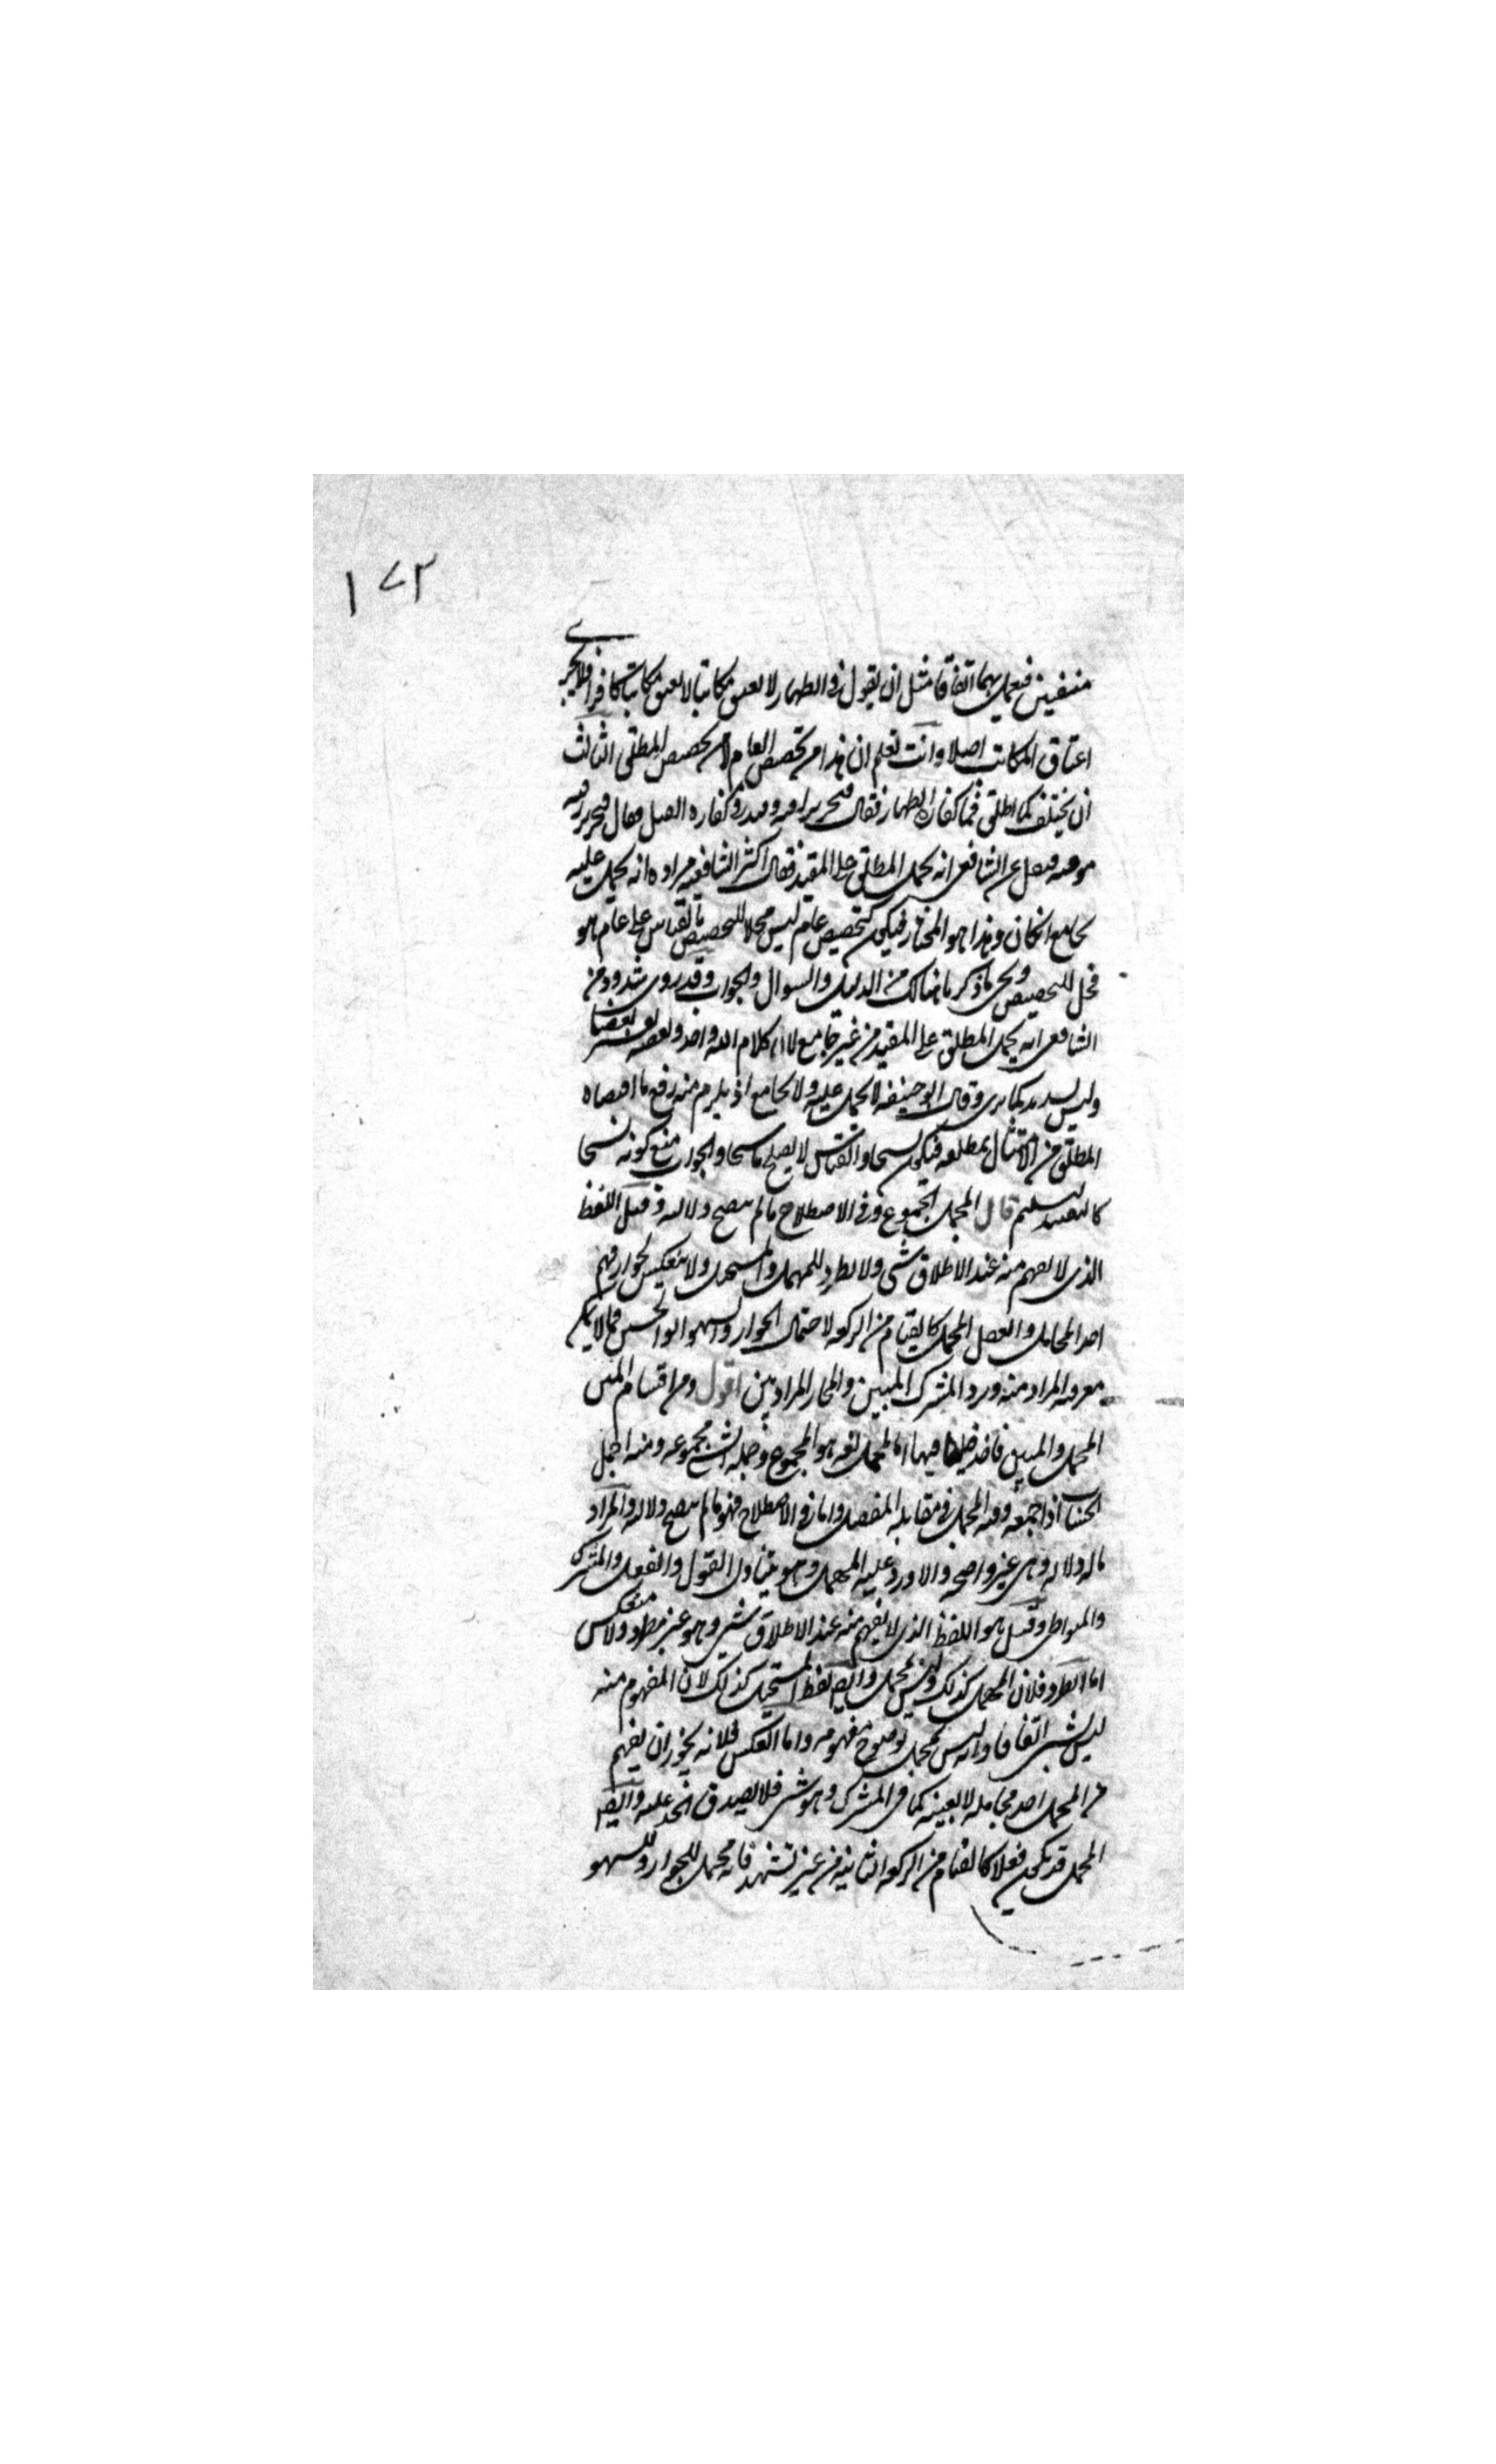 ١٧٢
منفيين فيعمل بهما اتفاقا مثل ان يقول في الظهار لا تعتق مكاتبا لا تعتق مكاتبا كافرا فلا يجزي
اعتاق المكاتب اصلا وانت تعلم ان هذا من تخصيص العام لا من تخصيص المطلق الثالث
ان يختلف كما اطلق في كفارة الظهار فقال فتحرير رقبة وقيد في كفارة القتل وقال فتحرير رقبة
مومنة فنقل عن الشافعي انه يحمل المطلق على المقيد فقال اكثر الشافعية مراده انه يحمل عليه
بجامع ان كان وهذا هو المختار فيكون كتخصيص عام ليس محلا للتخصيص بالقياس على عام هو
محل للتخصيص وبحي ما ذكرنا هنالك من الدليل والسوال والجواب وقد روى شذوذ من
الشافعي انه يحمل المطلق على المقيد من غير جامع لان كلام الله واحد وبعضه يفسر بعضا
وليس بسديد وقال ابو حنيفة لا يحمل عليه ولا بجامع اذ يلزم منه رفع ما اقتضاه
المطلق من الامتثال بمطلقه فيكون نسخا والقياس لا يصلح ناسخا والجواب منع كونه نسخا
كالتقييد بسليم قال المجمل المجموع وفي الاصطلاح ما لم يتضح دلالته وقيل اللفظ
الذي لا يفهم منه عند الاطلاق شي ولا يطرد للمهمل والمستحيل ولا ينعكس لجواز فهم
احد المحامل والفعل المجمل كالقيام من الركعة لاحتمال الجواز والسهو ابو الحسين ما لا يمكن
معرفة المراد منه ويرد المشترك المبين والمجاز المراد بين اقول ومن اقسام المتن
المجمل والمبين فاخذ فيهما اما المجمل لغة هو المجموع وجملة الشي مجموعه ومنه اجمل
الحساب اذا جمعه ومنه المجمل في مقابلة المفصل واما في الاصطلاح فهو ما لم يتضح دلالته والمراد
ما له دلالة وهي غير واضحة والا ورد عليه المهمل وهو يتناول القول والفعل والمشترك
والمتواطي وقيل هو اللفظ الذي لا يفهم منه عند الاطلاق شي وهو غير مطرد ولا منعكس
اما الطرد فلان المهمل كذلك وليس بمجمل وايض لفظ المستحيل كذلك لان المفهوم منه
ليس بشي اتفاقا وانه ليس بمجمل لوضوح مفهومه واما العكس فلانه يجوز ان يفهم
من المجمل احد محامله لا بعينه كما في المشترك وهو شي فلا يصدق الحد عليه وايض
المجمل قد يكون فعلا كالقيام من الركعة الثانية من غير تشهد فانه محتمل للجواز وللسهو